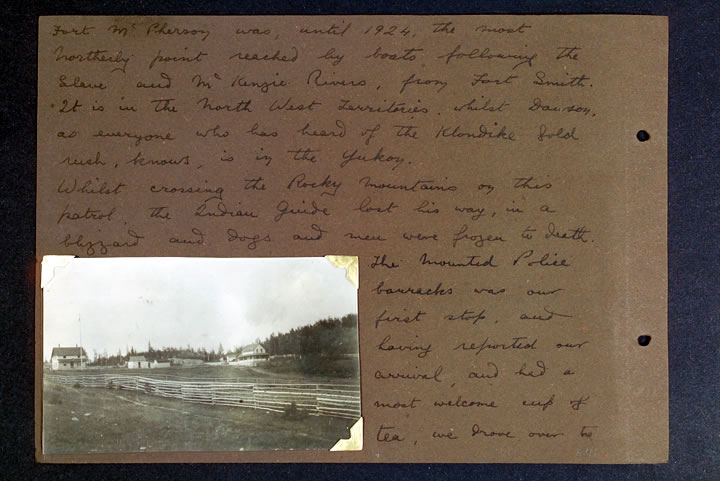 Fort Mc Pherson was, until 1924, the most
Northerly point reached by boats, following the
Slave and McKenzie Rivers, from Fort Smith.
It is in the North West Territories. whilst Dawson,
as everyone who has heard of the Klondike Gold
rush, knows, is in the Yukon.
Whilst crossing the Rocky Mountains on this
patrol the Indian Guide lost his way, in a
blizzard and dogs and men were frozen to death.
The Mounted Police
barracks was our
first stop, and
having reported our
arrival, and had a
most welcome cup of
tea, we drove over to